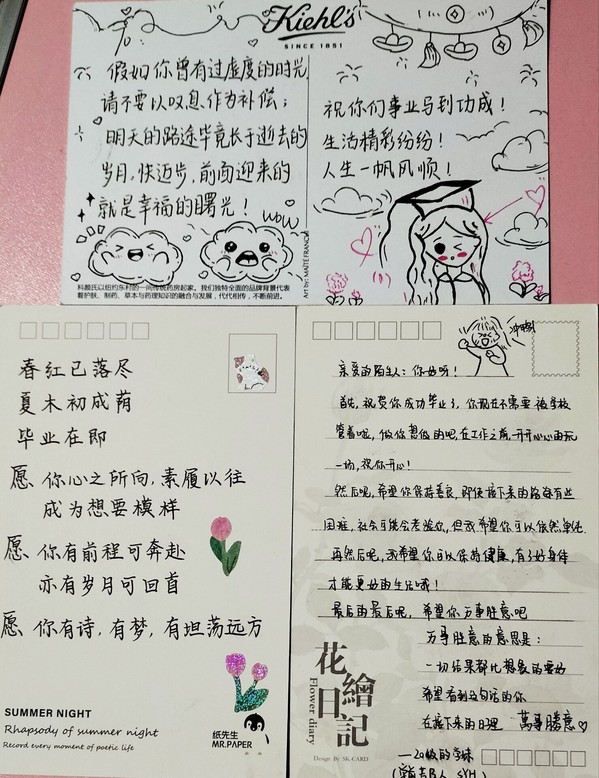 Kiehl's
SINCE 1851
假如你曾有过虚度的时光,
请不要以叹息作为补偿;
明天的路途毕竟长于逝去的
岁月,快迈步,前面迎来的
就是幸福的曙光!
wow
科颜氏以纽约东村的一间传统药房起家。我们独特全面的品牌背景代表
着护肤、制药、草本与药理知识的融合与发展,代代相传,不断前进。
Art by: MAÏTÉ FRANCHI
祝你们事业马到功成!
生活精彩纷纷!
人生一帆风顺!
春红已落尽
夏木初成荫
毕业在即
愿 你心之所向,素履以往
成为想要模样
愿 你有前程可奔赴
亦有岁月可回首
愿 你有诗,有梦,有坦荡远方
SUMMER NIGHT
Rhapsody of summer night
Record every moment of poetic life
纸先生
MR.PAPER
冲鸭
亲爱的陌生人:你好呀!
首先,祝贺你成功毕业了,你现在不需要被学校
管着啦,做你想做的吧,在工作之前,开开心心再玩
一场,祝你开心!
然后呢,希望你保持善良,即使接下来的路途有些
困难,社会可能会考验你,但我希望你可以依然单纯.
再然后呢,我希望你可以保持健康,有了好身体
才能更好的生活哦!
最后的最后呢,希望你万事胜意吧
万事胜意的意思是:
一切结果都比想象的要好
希望看到这句话的你
在接下来的日子里 萬事勝意
花繪日記
Flower diary
Design By SK-CARD
—20级的学妹